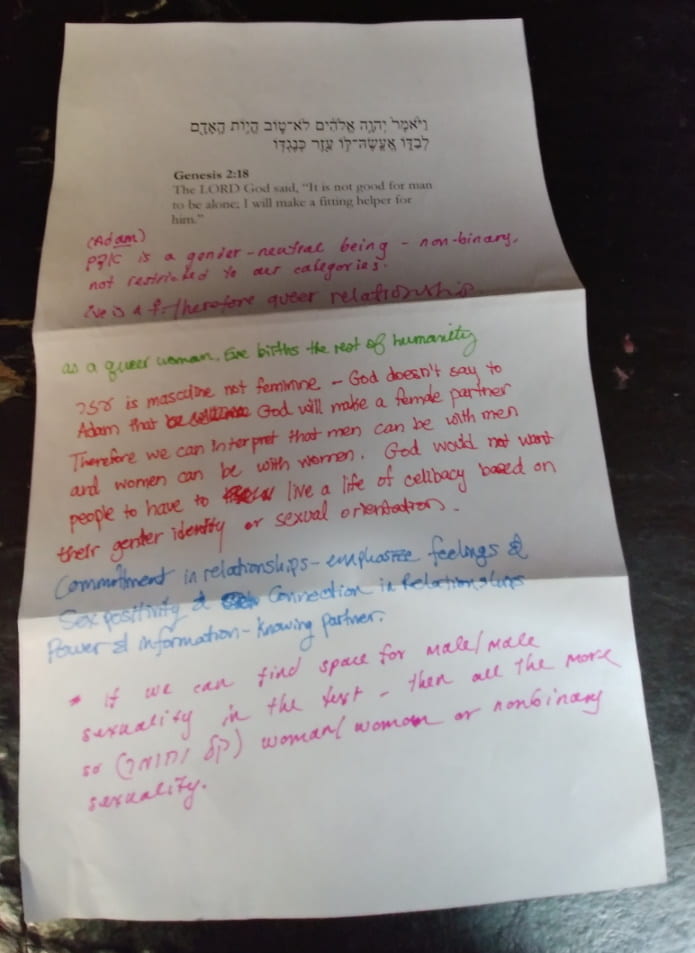 וַיֹּאמֶר יְהוָה אֱלֹהִים לֹא־טוֹב הֱיוֹת הָאָדָם
לְבַדּוֹ אֶעֱשֶׂה־לּוֹ עֵזֶר כְּנֶגְדּוֹ
Genesis 2:18
The LORD God said, “It is not good for man
to be alone; I will make a fitting helper for
him.”
(Adam)
אדם is a gender-neutral being - non-binary,
not restricted to our categories.
Eve is a f. Therefore queer relationship
as a queer woman, Eve births the rest of humanity
עזר is masculine not feminine - God doesn't say to
Adam that God will make a female partner
Therefore we can interpret that men can be with men
and women can be with women. God would not want
people to have to live a life of celibacy based on
their gender identity or sexual orientation.
Commitment in relationships - emphasize feelings &
Sex positivity & Connection in Relationships
Power & information - knowing partner.
* if we can find space for male/male
sexuality in the text - then all the more
so (קל וחומר) woman/woman or nonbinary
sexuality.